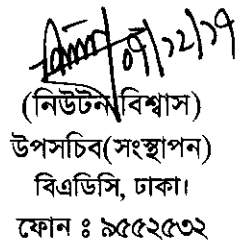 ০৭/১২/১৭
(নিউটন বিশ্বাস)
উপসচিব(সংস্থাপন)
বিএডিসি, ঢাকা।
ফোন ঃ ৯৫৫২৫৩২